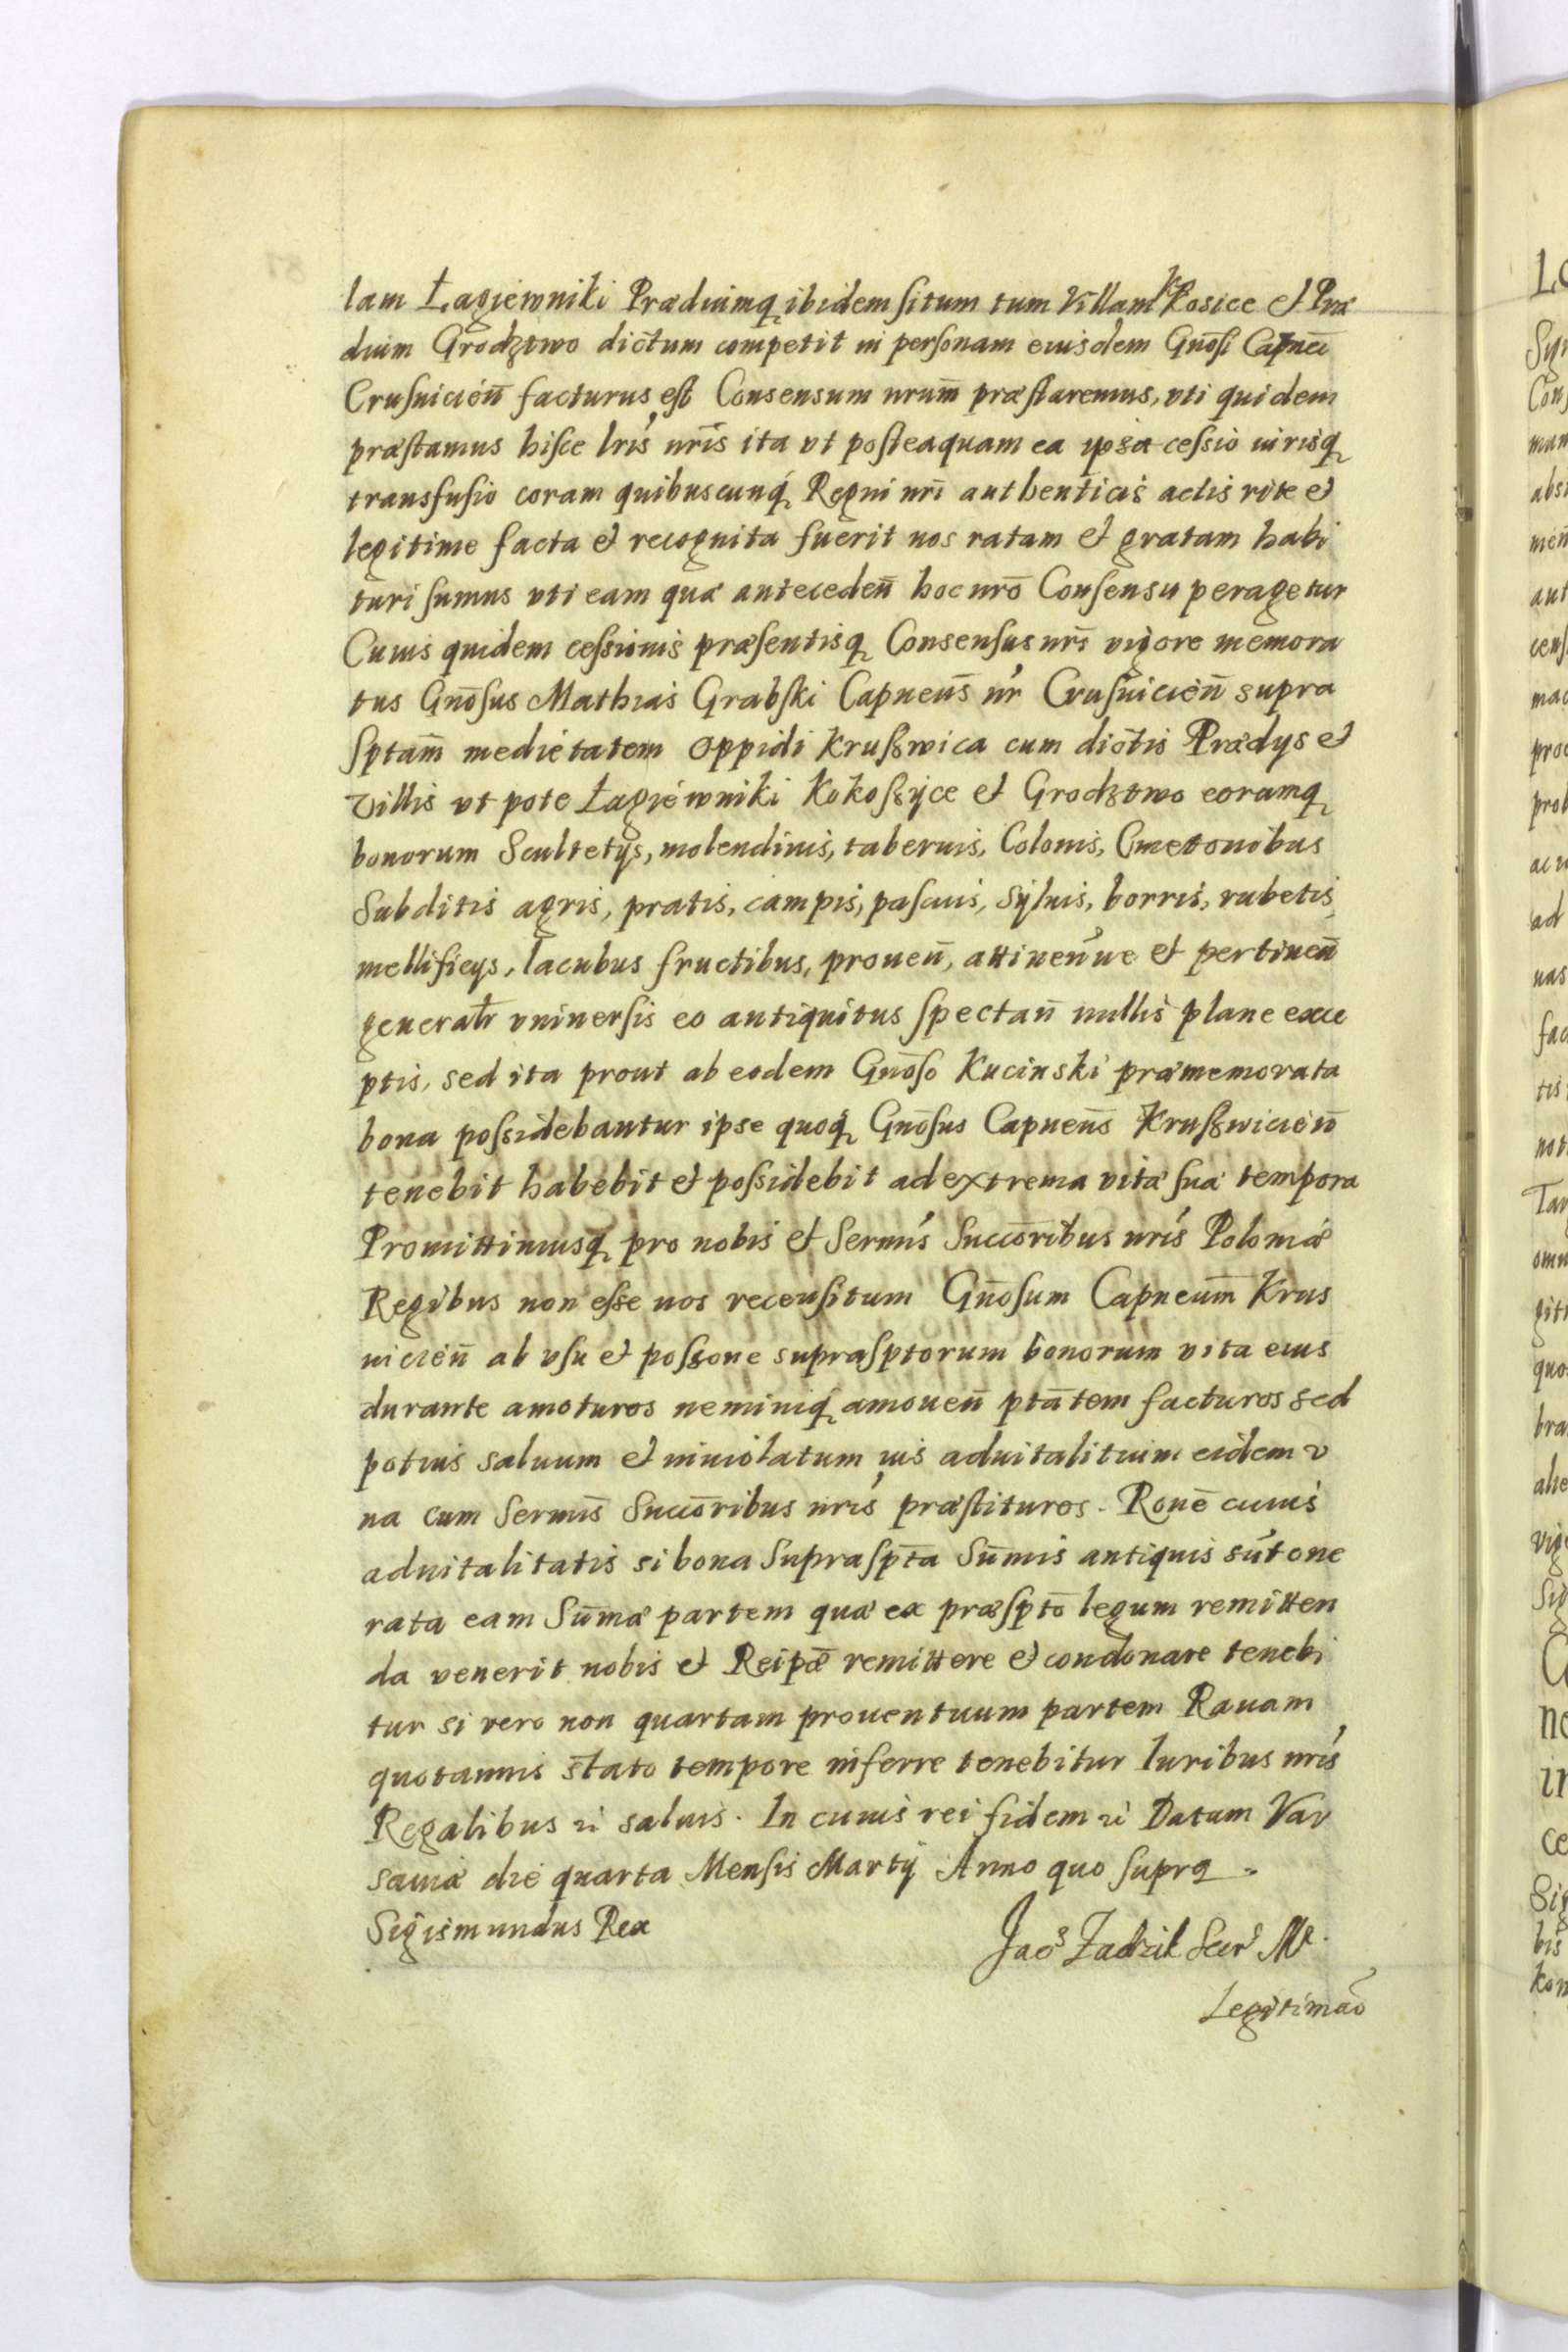 lam Łagiewniki Prædiumq́ ibidem situm tum Villam Kokosice et Præ
dium Grodztwo dictum competit in personam eiusdem Gnōsi Capnei
Crusuicień facturus est Consensum nrum̄ præstaremus, vti quidem
præstamus hisce lris nris̄ ita vt posteaquam ea ipsa cessio iurisq́
transfusio coram quibuscunq́ Regni nri̅ authenticis actis rite et
legitime facta et recognita fuerit nos ratam et gratam habi
turi sumus vti eam quæ anteceden̄ hoc nrō Consensu peragetur
Cuius quidem cessionis præsentisq́ Consensus nri̅ vigore memora
tus Gnōsus Mathias Grabski Capneus̄ nr̄ Crusuicien̄ supra
sptam̄ medietatem oppidi Kruszwica cum dictis Prædys et
Villis vt pote Łagiewniki Kokoszyce et Grodztwo eorumq́
bonorum Scultetÿs, molendinis, tabernis, Colonis, Cmetonibus
Subditis agris, pratis, campis, pascuis, Syluis, borris, rubetis,
mellificys, lacubus fructibus, prouen̄, attinen̄ue et pertinen̄
generalr̄ vniuersis eo antiquitus spectan̄ nullis plane exce
ptis, sed ita prout ab eodem Gnōso Kucinski præmemorata
bona possidebantur ipse quoq́ Gnōsus Capneus̄ Kruszwicien̄
tenebit habebit et possidebit ad extrema vitæ suæ tempora
Promittimusq́ pro nobis et Sermis̄ Succōribus nris̄ Poloniæ
Regibus non esse nos recensitum Gnōsum Capneum̄ Krus
uicien̄ ab vsu et possone supraSptorum bonorum vita eius
durante amoturos neminiq́ amouen̄ ptātem facturos sed
potius saluum et inuiolatum ius aduitalitium eidem v
na cum Sermis̄ Succōribus nris̄ præstituros. Ronē cuius
aduitalitatis si bona Supraspt̄a Sum̄is antiquis sūt one
rata eam Sum̄æ partem quæ ex præsptō legum remitten
da venerit nobis et Reipǣ remittere et condonare tenebi
tur si vero non quartam prouentuum partem Rauam
quotannis stato tempore inferre tenebitur Iuribus nris̄
Regalibus ꝛc̄ saluis. In cuius rei fidem ꝛc̄ Datum Var
sauiæ die quarta Mensis Martÿ Anno quo supra.
Sigismundus Rex
Jacs̄ Zadzik Secr̄ Mr.
Legitimaō